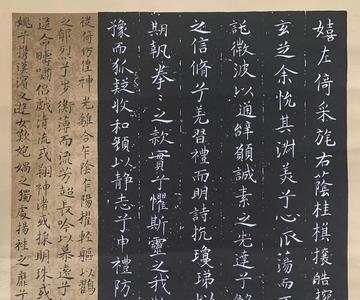 嬉左倚采旄右蔭桂旗攘皓腕
玄芝余悅其淑美兮心振蕩而
託微波以通辭願誠素之先達兮解
之信脩兮羌習禮而明詩抗瓊珶以
期執拳〻之款實兮懼斯靈之我
豫而狐疑收和顏以靜志兮申禮防
徙倚仿偟神光離合乍陰乍陽擢輕軀以鶴
之郁烈兮步衡薄而流芳超長吟以慕遠兮
命疇嘯侶戲清流或翔神渚或採明珠或
姚兮攜漢濱之游女歎匏媧之獨處揚袿之靡兮